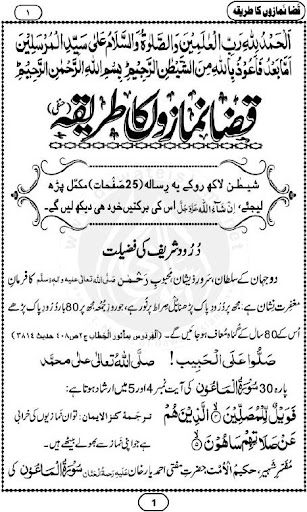 ۱ قضا نمازوں کا طریقہ
اَلْحَمْدُ لِلّٰہِ رَبِّ الْعٰلَمِیْنَ وَالصَّلٰوۃُ وَالسَّلَامُ عَلٰی سَیِّدِ الْمُرْسَلِیْنَ
اَمَّا بَعْدُ فَاَعُوْذُ بِاللّٰہِ مِنَ الشَّیْطٰنِ الرَّجِیْمِ بِسْمِ اللّٰہِ الرَّحْمٰنِ الرَّحِیْمِ
قضا نمازوں کا طریقہ (حنفی)
شیطٰن لاکھ روکے یہ رسالہ (25 صَفْحات) مکمَّل پڑھ
لیجئے، اِنْ شَآءَاللہ عَزَّوَجَلَّ اس کی برکتیں خود ہی دیکھ لیں گے۔
دُرُود شریف کی فضیلت
دو جہان کے سلطان، سرورِ ذیشان، محبوبِ رَحمٰن صلَّی اللہ تعالٰی علیہ واٰلہٖ وسلَّم کا فرمانِ
مغفرت نشان ہے، مجھ پر دُرُودِ پاک پڑھنا پُل صِراط پر نور ہے، جو روزِ جمعہ مجھ پر 80 بار دُرُودِ پاک پڑھے
اُس کے 80 سال کے گناہ معاف ہو جائیں گے۔ (اَلفِردَوس بمأثور الْخِطاب ج۲ ص۴۰۸ حدیث ۳۸۱۴)
صَلُّوا عَلَی الْحَبِیْب ! صلَّی اللہُ تعالٰی علٰی محمَّد
پارہ 30 سُوْرَۃُ الْمَاعُوْن کی آیت نمبر 4 اور 5 میں ارشاد ہوتا ہے:
فَوَیْلٌ لِّلْمُصَلِّیْنَ ۙ﴿۴﴾ الَّذِیْنَ ہُمْ ترجَمۂ کنزالایمان: تو ان نمازیوں کی خرابی
عَنْ صَلَاتِہِمْ سَاہُوْنَ ۙ﴿۵﴾ ہے جو اپنی نماز سے بھولے بیٹھے ہیں۔
مُفَسِّرِ شہیر، حکیمُ الْاُمَّت حضرتِ مفتی احمد یار خان علیہ رحمۃ الحنّان سُوْرَۃُ الْمَاعُوْن کی
1